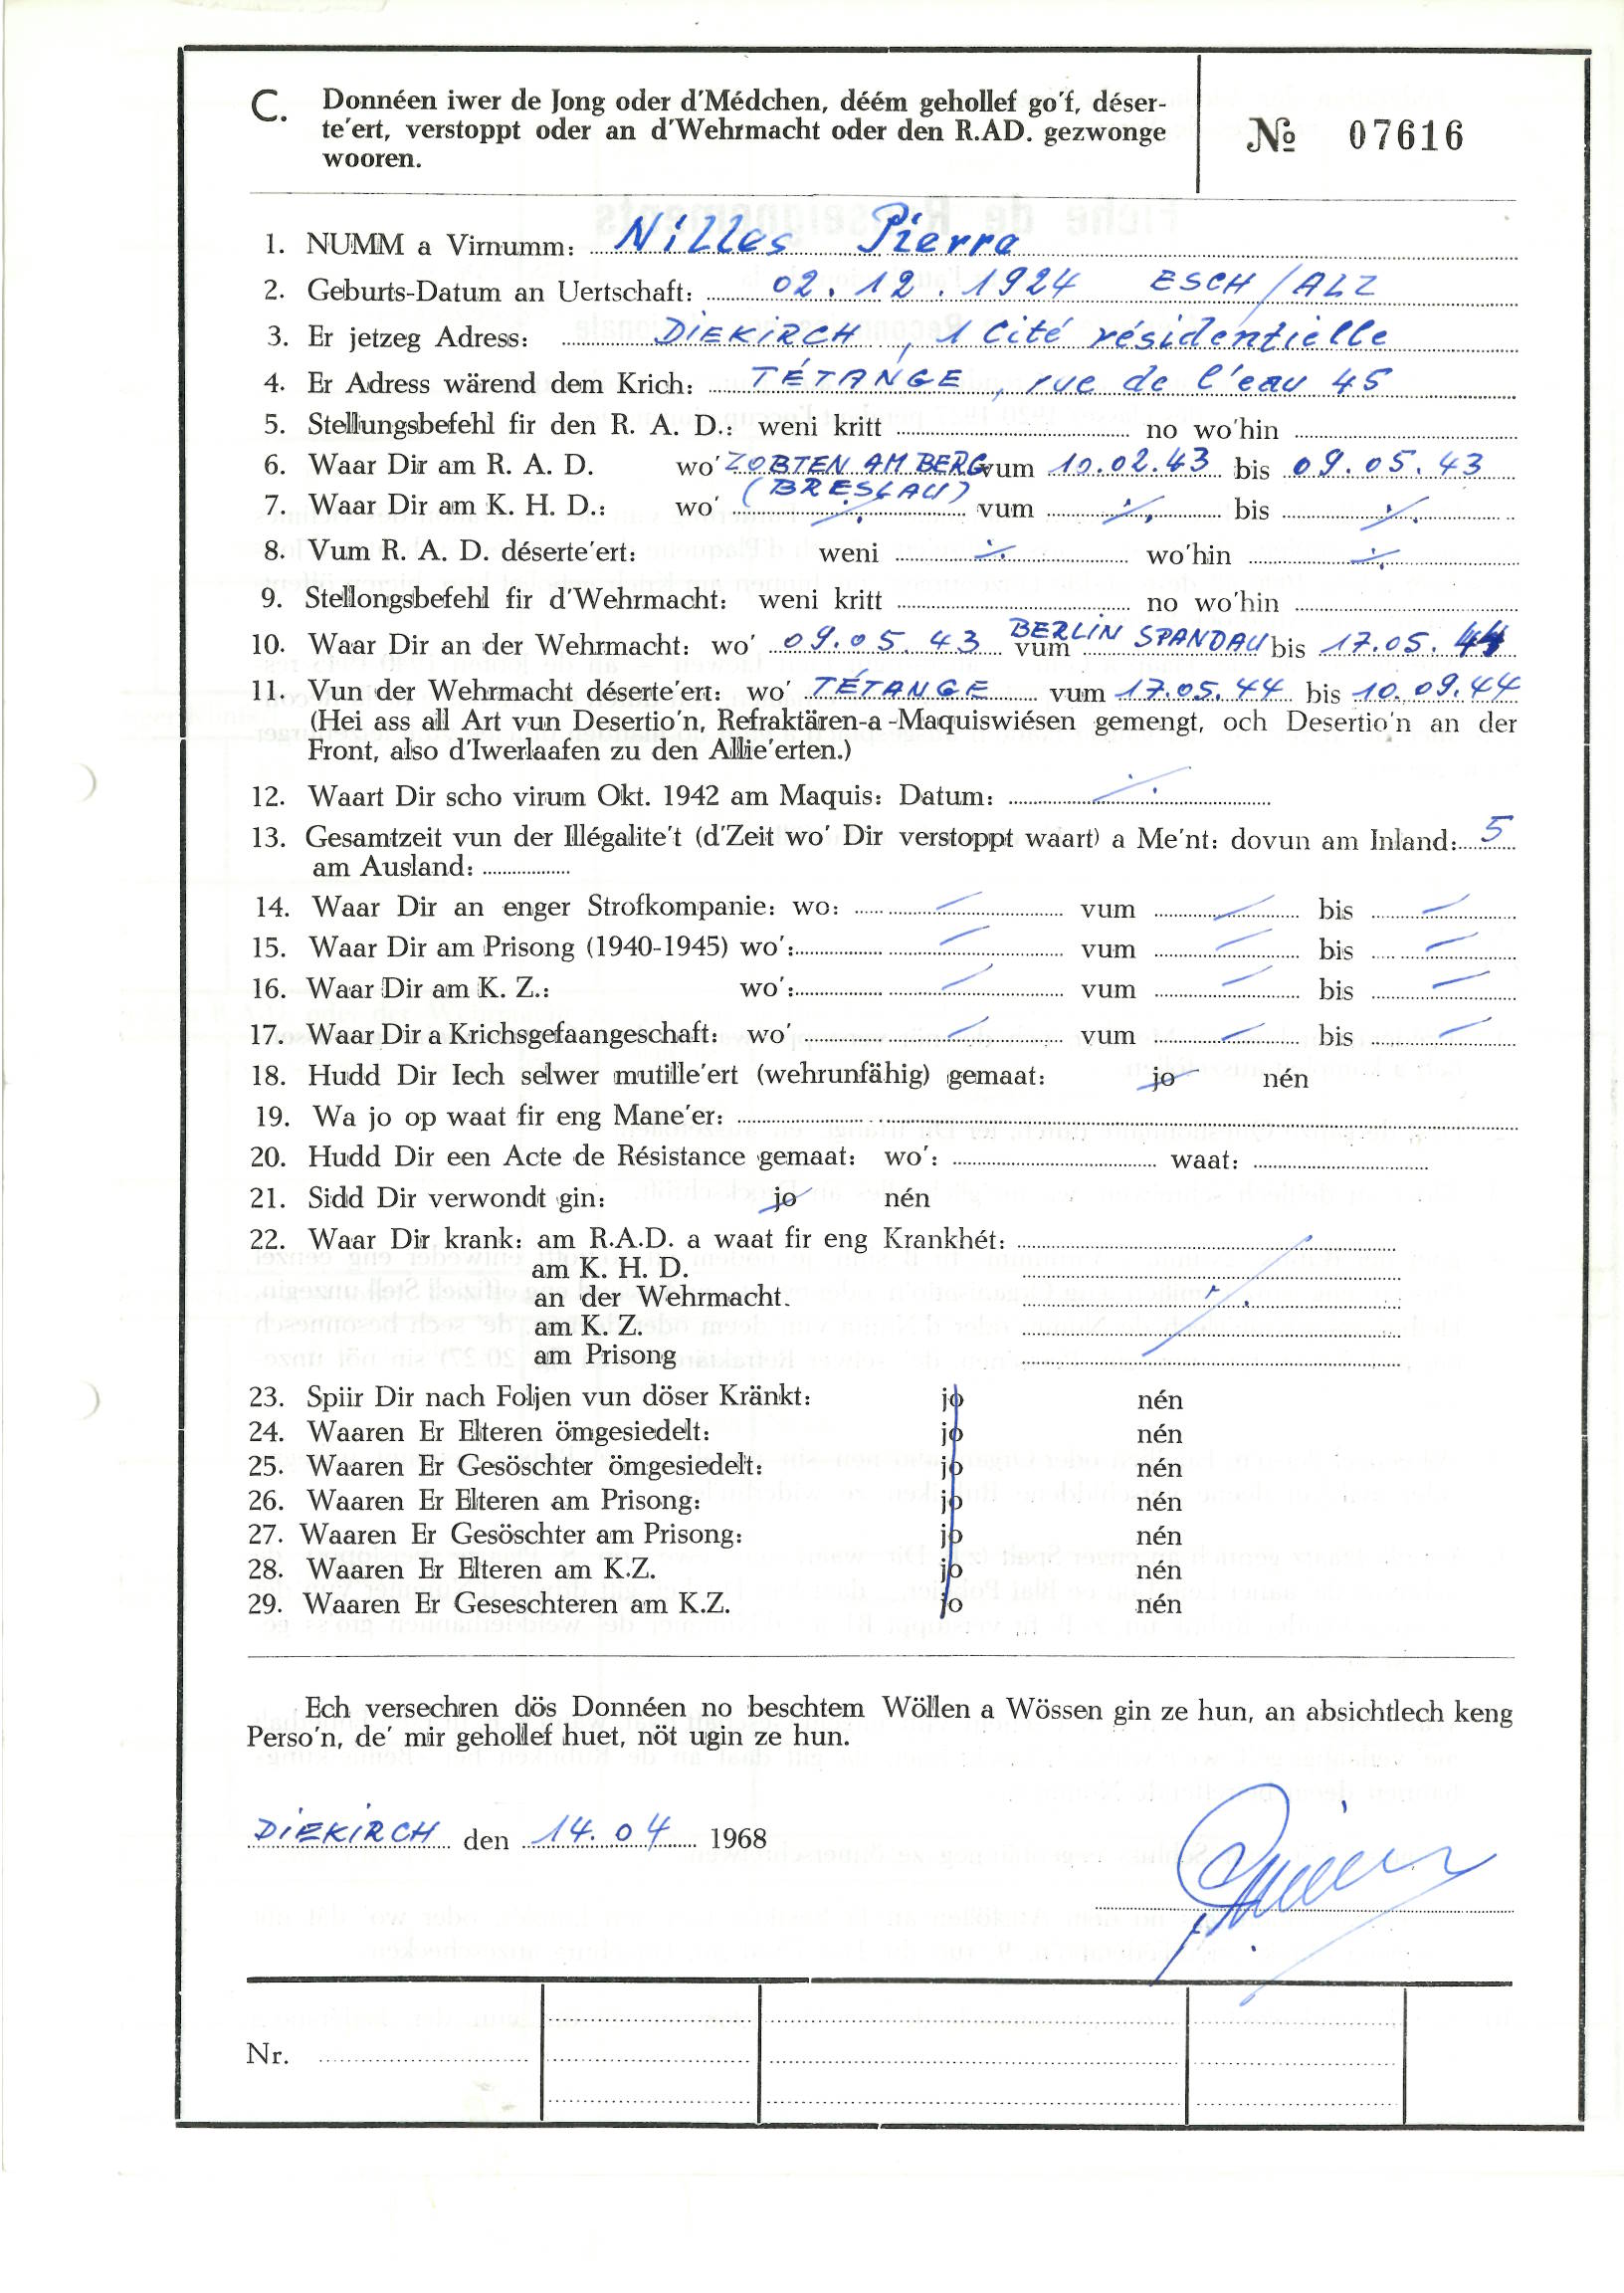 C. Donnéen iwer de Jong oder d'Médchen, déém gehollef go'f, déser-
te'ert, verstoppt oder an d'Wehrmacht oder den R.AD. gezwonge
wooren.
№ 07616
1. NUMM a Virnumm: Nilles Pierre
2. Geburts-Datum an Uertschaft: 02.12.1924 ESCH/ALZ
3. Er jetzeg Adress: DIEKIRCH, 1 Cité résidentielle
4. Er Adress wärend dem Krich: TÉTANGE, rue de l'eau 45
5. Stellungsbefehl fir den R. A. D.: weni kritt no wo'hin
6. Waar Dir am R. A. D. wo' ZOBTEN AM BERG vum 10.02.43 bis 09.05.43
(BRESLAU)
7. Waar Dir am K. H. D.: wo' ./. vum ./. bis ./.
8. Vum R. A. D. déserte'ert: weni ./. wo'hin ./.
9. Stellongsbefehl fir d'Wehrmacht: weni kritt no wo'hin
10. Waar Dir an der Wehrmacht: wo' 09.05.43 vum BERLIN SPANDAU bis 17.05.44
11. Vun der Wehrmacht déserte'ert: wo' TÉTANGE vum 17.05.44 bis 10.09.44
(Hei ass all Art vun Desertio'n, Refraktären-a-Maquiswiésen gemengt, och Desertio'n an der
Front, also d'Iwerlaafen zu den Allie'erten.)
12. Waart Dir scho virum Okt. 1942 am Maquis: Datum: ./.
13. Gesamtzeit vun der Illégalite't (d'Zeit wo' Dir verstoppt waart) a Me'nt: dovun am Inland: 5
am Ausland:
14. Waar Dir an enger Strofkompanie: wo: — vum — bis —
15. Waar Dir am Prisong (1940-1945) wo': — vum — bis —
16. Waar Dir am K. Z.: wo': — vum — bis —
17. Waar Dir a Krichsgefaangeschaft: wo' — vum — bis —
18. Hudd Dir Iech selwer mutille'ert (wehrunfähig) gemaat: jo nén
19. Wa jo op waat fir eng Mane'er:
20. Hudd Dir een Acte de Résistance gemaat: wo': waat:
21. Sidd Dir verwondt gin: jo nén
22. Waar Dir krank: am R.A.D. a waat fir eng Krankhét:
am K. H. D.
an der Wehrmacht. ./.
am K. Z.
am Prisong
23. Spiir Dir nach Foljen vun döser Kränkt: jo nén
24. Waaren Er Elteren ömgesiedelt: jo nén
25. Waaren Er Gesöschter ömgesiedelt: jo nén
26. Waaren Er Elteren am Prisong: jo nén
27. Waaren Er Gesöschter am Prisong: jo nén
28. Waaren Er Elteren am K.Z. jo nén
29. Waaren Er Geseschteren am K.Z. jo nén
Ech versechren dös Donnéen no beschtem Wöllen a Wössen gin ze hun, an absichtlech keng
Perso'n, de' mir gehollef huet, nöt ugin ze hun.
DIEKIRCH den 14.04 1968
Nr.